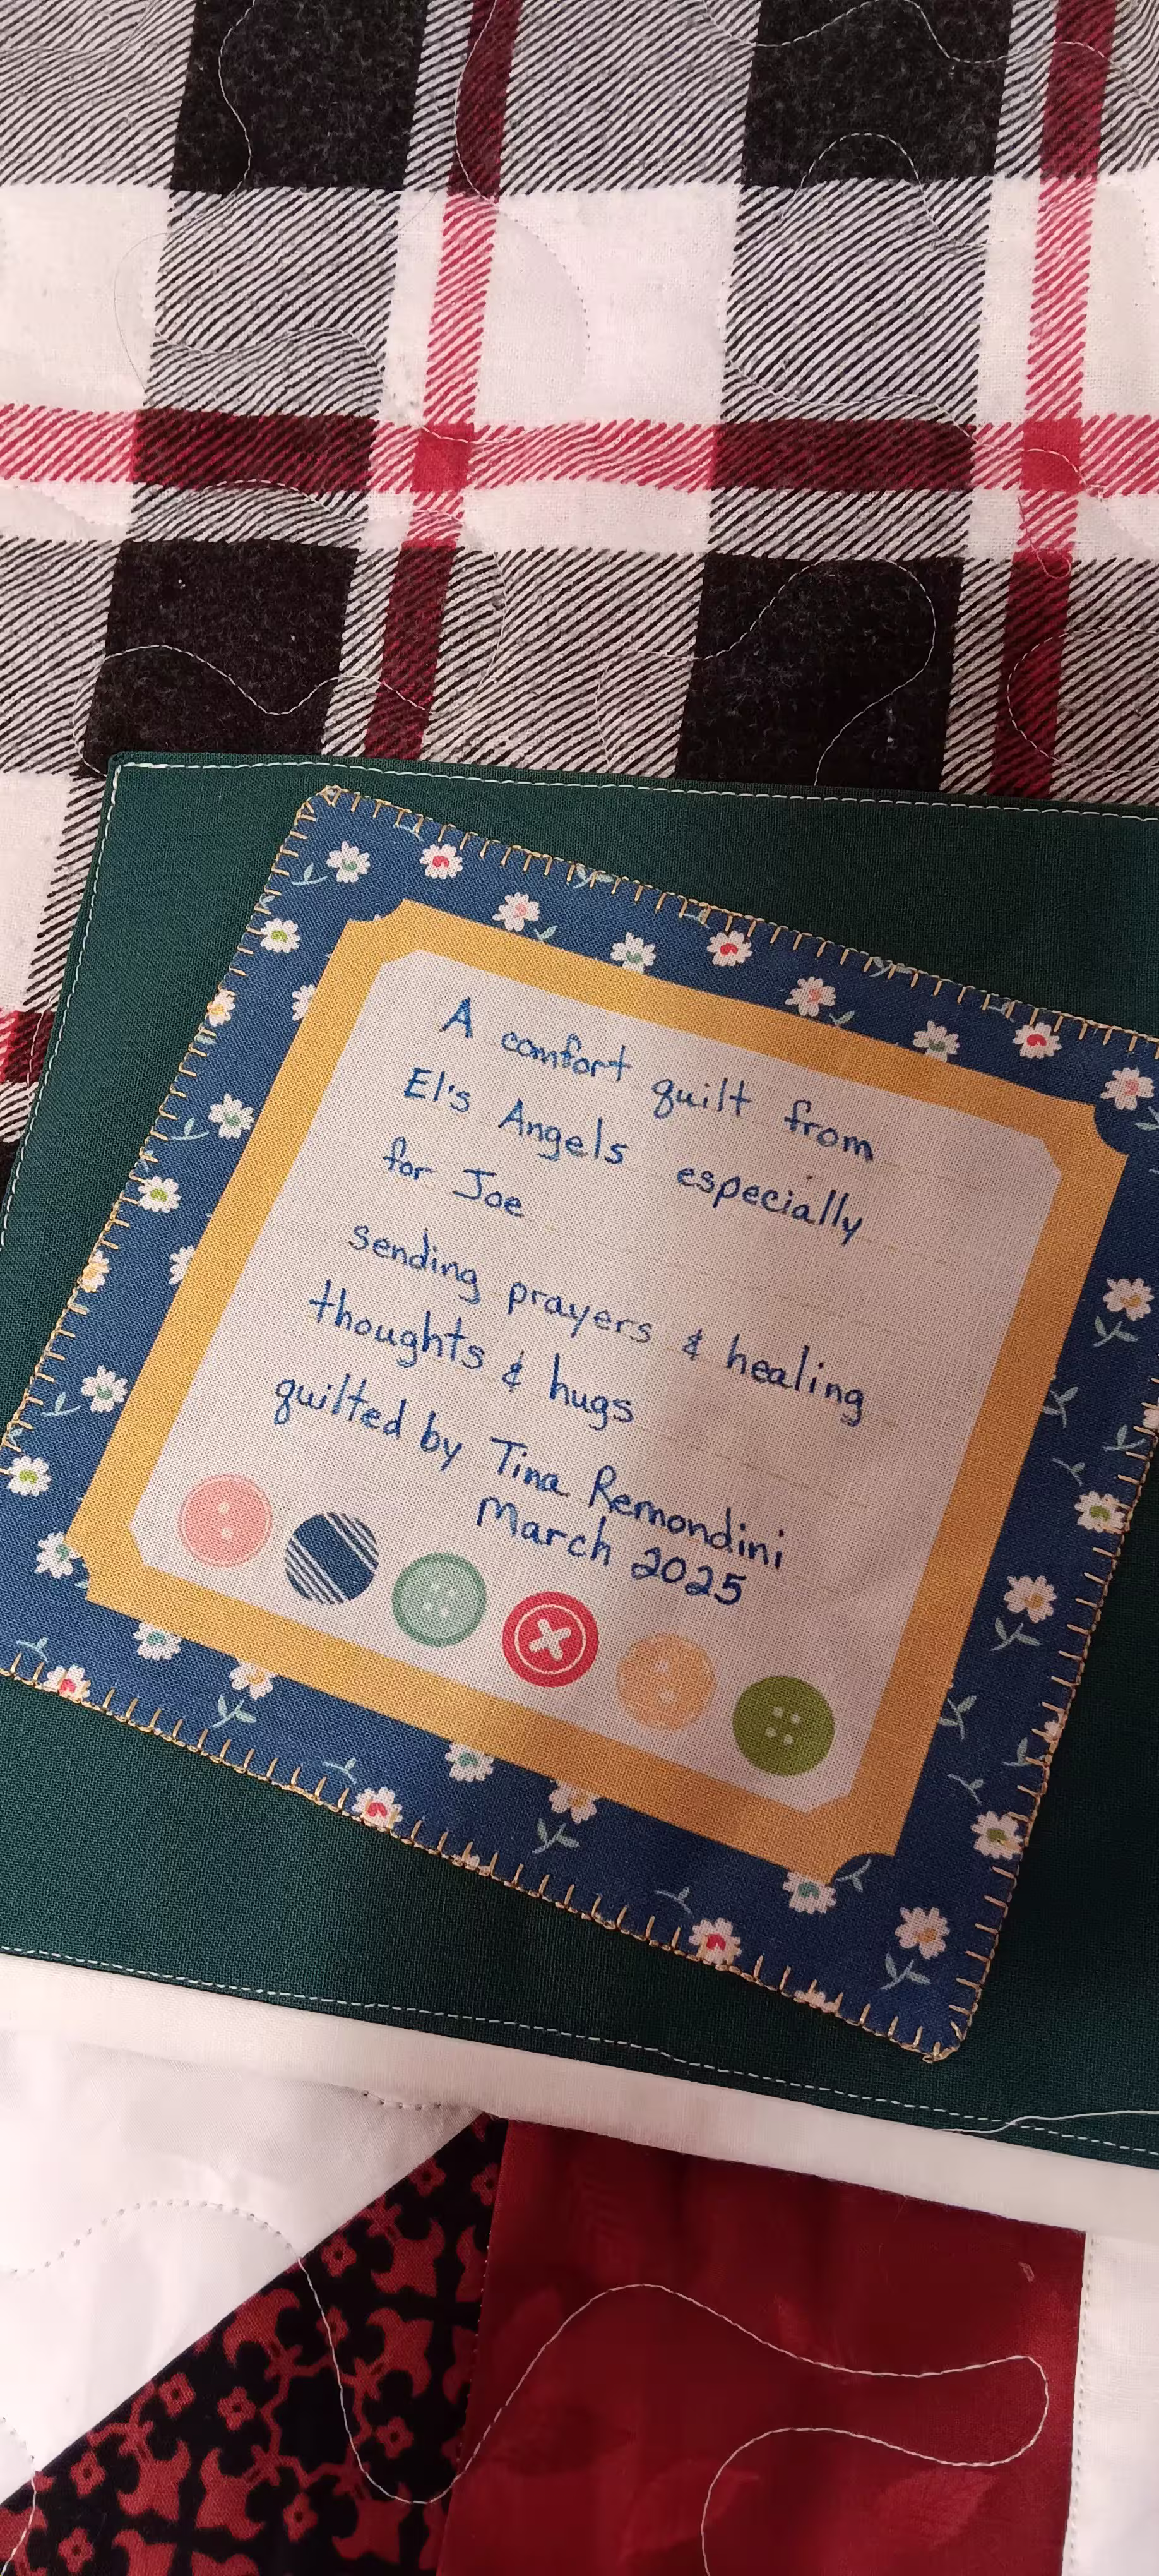 A comfort quilt from
El's Angels especially
for Joe
sending prayers & healing
thoughts & hugs
quilted by Tina Remondini
March 2025